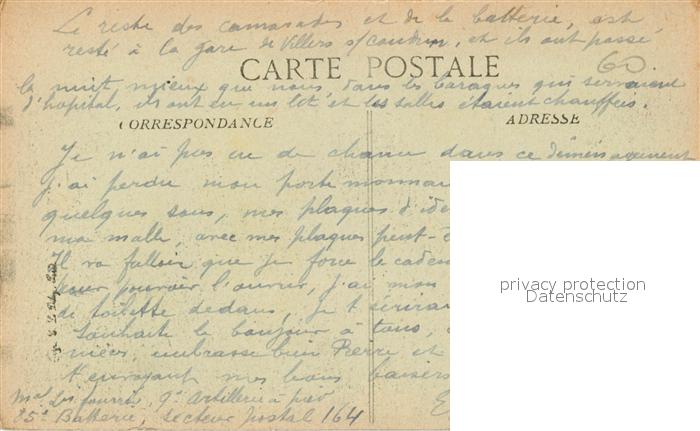 Le reste des camarades et de la batterie, est
resté à la gare de Villers s/ Coudun, et ils ont passé
60
la nuit mieux que nous dans les baraques qui servaient
d'hopital, ils ont eu un lit, et les salles étaient chauffées.
CARTE POSTALE
CORRESPONDANCE
ADRESSE
Je n'ai pas eu de chance dans ce déménagement
j'ai perdu mon porte monnai
quelques sous, mes plaques d'ide
ma malle, avec mes plaques peut-ê
Il va falloir que je force le caden
pour pouvoir l'ouvrir, j'ai mon
de toilette dedans, je t'écrirai
souhaite le bonjour à tous,
nièces, embrasse bien Pierre et
t'envoyant mes bons baisers
9e Artillerie à pied
85e Batterie, secteur postal 164
privacy protection
Datenschutz